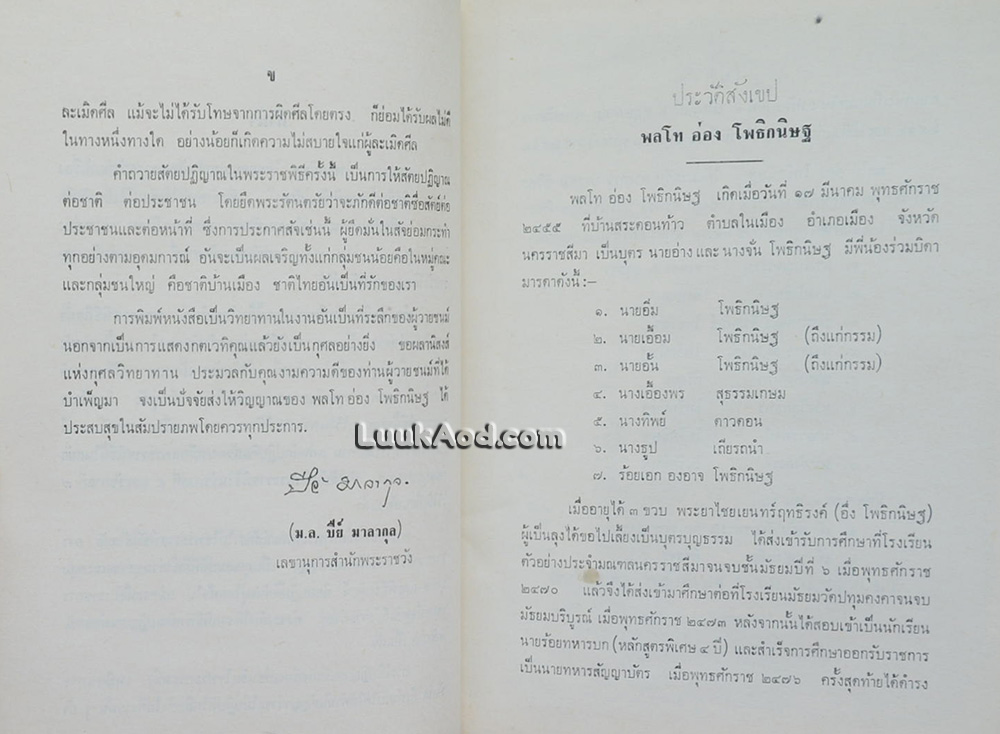 ข
ละเมิดศีล แม้จะไม่ได้รับโทษจากการผิดศีลโดยตรง ก็ย่อมได้รับผลไม่ดี
ในทางหนึ่งทางใด อย่างน้อยก็เกิดความไม่สบายใจแก่ผู้ละเมิดศีล
คำถวายสัตยปฏิญาณในพระราชพิธีครั้งนี้ เป็นการให้สัตยปฏิญาณ
ต่อชาติ ต่อประชาชน โดยยึดพระรัตนตรัยว่าจะภักดีต่อชาติซื่อสัตย์ต่อ
ประชาชนและต่อหน้าที่ ซึ่งการประกาศสัจเช่นนี้ ผู้ยึดมั่นในสัจย่อมกระทำ
ทุกอย่างตามอุดมการณ์ อันจะเป็นผลเจริญทั้งแก่กลุ่มชนน้อยคือในหมู่คณะ
และกลุ่มชนใหญ่ คือชาติบ้านเมือง ชาติไทยอันเป็นที่รักของเรา
การพิมพ์หนังสือเป็นวิทยาทานในงานอันเป็นที่ระลึกของผู้วายชนม์
นอกจากเป็นการแสดงกตเวทิคุณแล้วยังเป็นกุศลอย่างยิ่ง ขอผลานิสงส์
แห่งกุศลวิทยาทาน ประมวลกับคุณงามความดีของท่านผู้วายชนม์ที่ได้
บำเพ็ญมา จงเป็นปัจจัยส่งให้วิญญาณของ พลโท อ่อง โพธิกนิษฐ ได้
ประสบสุขในสัมปรายภพโดยควรทุกประการ.
ปีย์ มาลากุล
(ม.ล. ปีย์ มาลากุล)
เลขานุการสำนักพระราชวัง
ประวัติสังเขป
พลโท อ่อง โพธิกนิษฐ
พลโท อ่อง โพธิกนิษฐ เกิดเมื่อวันที่ ๑๗ มีนาคม พุทธศักราช
๒๔๕๕ ที่บ้านสระดอนท้าว ตำบลในเมือง อำเภอเมือง จังหวัด
นครราชสีมา เป็นบุตร นายอ่าง และ นางจั่น โพธิกนิษฐ มีพี่น้องร่วมบิดา
มารดาดังนี้ :–
๑. นายอิ่ม โพธิกนิษฐ
๒. นายเอื้อม โพธิกนิษฐ (ถึงแก่กรรม)
๓. นายอั้น โพธิกนิษฐ (ถึงแก่กรรม)
๔. นางเอื้องพร สุธรรมเกษม
๕. นางทิพย์ ดาวดอน
๖. นางธูป เถียรถนำ
๗. ร้อยเอก องอาจ โพธิกนิษฐ
เมื่ออายุได้ ๓ ขวบ พระยาไชยเยนทร์ฤทธิรงค์ (อึ่ง โพธิกนิษฐ)
ผู้เป็นลุงได้ขอไปเลี้ยงเป็นบุตรบุญธรรม ได้ส่งเข้ารับการศึกษาที่โรงเรียน
ตัวอย่างประจำมณฑลนครราชสีมาจนจบชั้นมัธยมปีที่ ๖ เมื่อพุทธศักราช
๒๔๗๐ แล้วจึงได้ส่งเข้ามาศึกษาต่อที่โรงเรียนมัธยมวัดปทุมคงคาจนจบ
มัธยมบริบูรณ์ เมื่อพุทธศักราช ๒๔๗๓ หลังจากนั้นได้สอบเข้าเป็นนักเรียน
นายร้อยทหารบก (หลักสูตรพิเศษ ๔ ปี) และสำเร็จการศึกษาออกรับราชการ
เป็นนายทหารสัญญาบัตร เมื่อพุทธศักราช ๒๔๗๖ ครั้งสุดท้ายได้ดำรง
LuukAod.com